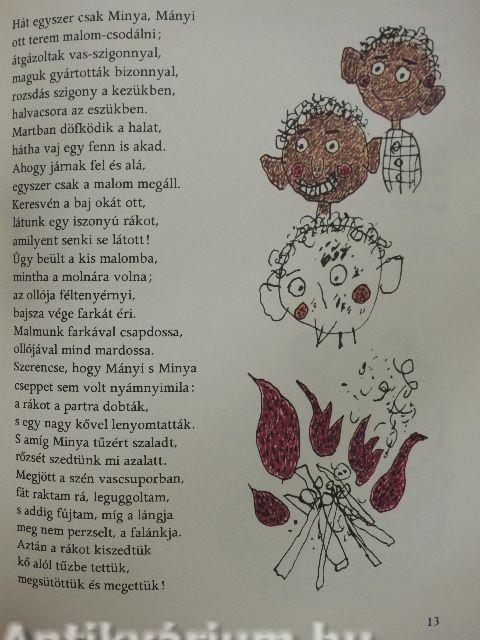 Hát egyszer csak Minya, Mányi
ott terem malom-csodálni;
átgázoltak vas-szigonnyal,
maguk gyártották bizonnyal,
rozsdás szigony a kezükben,
halvacsora az eszükben.
Martban döfködik a halat,
hátha vaj egy fenn is akad.
Ahogy járnak fel és alá,
egyszer csak a malom megáll.
Keresvén a baj okát ott,
látunk egy iszonyú rákot,
amilyent senki se látott!
Úgy beült a kis malomba,
mintha a molnára volna;
az ollója féltenyérnyi,
bajsza vége farkát éri.
Malmunk farkával csapdossa,
ollójával mind mardossa.
Szerencse, hogy Mányi s Minya
cseppet sem volt nyámnyimila:
a rákot a partra dobták,
s egy nagy kővel lenyomtatták.
S amíg Minya tűzért szaladt,
rőzsét szedtünk mi azalatt.
Megjött a szén vascsuporban,
fát raktam rá, leguggoltam,
s addig fújtam, míg a lángja
meg nem perzselt, a falánkja.
Aztán a rákot kiszedtük
kő alól tűzbe tettük,
megsütöttük és megettük!
13
Antikvárium.hu